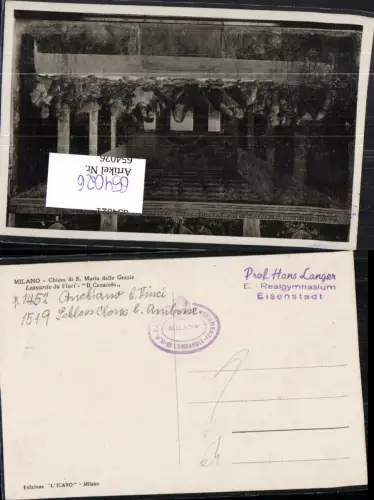 654026
Artikel Nr.
054026
MILANO - Chiesa di S. Maria delle Grazie
Leonardo da Vinci - "Il Cenacolo"
* 1452 Anchiano b. Vinci
1519 Schloss Cloux b. Amboise
MILANO
Prof. Hans Langer
E. - Realgymnasium
Eisenstadt
Edizione "L'ICARO" - Milano